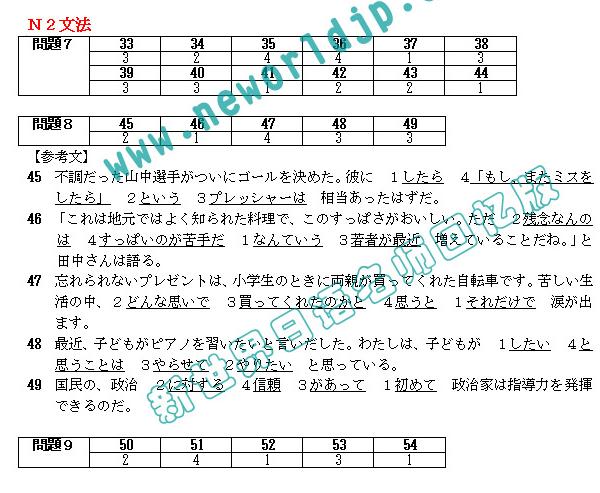 N2文法
問題7 33 34 35 36 37 38
3 2 4 4 1 3
39 40 41 42 43 44
3 3 1 2 2 1
問題8 45 46 47 48 49
2 1 4 3 3
【参考文】
45 不調だった山中選手がついにゴールを決めた。彼に 1したら 4「もし、またミスを
したら」 2という 3プレッシャーは 相当あったはずだ。
46 「これは地元ではよく知られた料理で、このすっぱさがおいしい。ただ 2残念なんの
は 4すっぱいのが苦手だ 1なんていう 3若者が最近 増えていることだね。」と
田中さんは語る。
47 忘れられないプレゼントは、小学生のときに両親が買ってくれた自転車です。苦しい生
活の中、2どんな思いで 3買ってくれたのかと 4思うと 1それだけで 涙が出
ます。
48 最近、子どもがピアノを習いたいと言いだした。わたしは、子どもが 1したい 4と
思うことは 3やらせて 2やりたい と思っている。
49 国民の、政治 2に対する 4信頼 3があって 1初めて 政治家は指導力を発揮
できるのだ。
問題9 50 51 52 53 54
2 4 1 3 1
www.neworldjp.com
新世界日语名师回忆版